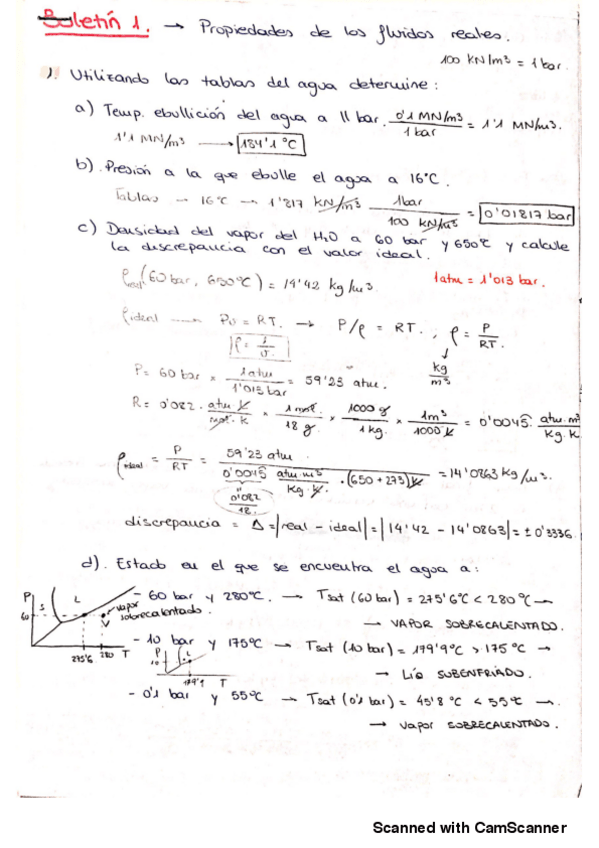 Boletín 1. → Propiedades de los fluidos reales.
100 KN/m² = 1 bar.
1. Utilizando las tablas del agua determine:
a) Temp. ebullición del agua a 11 bar. 0'1 MN/m² / 1 bar = 1'1 MN/m².
1'1 MN/m² → 184'1 °C
b). Presión a la que ebulle el agua a 16°C.
Tablas → 16°C → 1'817 KN/m² 1bar / 100 KN/m² = 0'01817 bar
c) Densidad del vapor del H₂O a 60 bar y 650°C y calcule
la discrepancia con el valor ideal.
ρreal (60 bar, 650°C) = 14'42 kg/m³ 1atm = 1'013 bar.
ρideal → Pv = RT. → P/ρ = RT. ; ρ = P/RT.
ρ = 1/v. kg/m³
P = 60 bar × 1atm / 1'013 bar = 59'23 atm.
R = 0'082 · atm·l / mol·K × 1 mol / 18 g × 1000 g / 1 kg × 1m³ / 1000 l = 0'0045̂ atm·m³ / Kg·K
ρideal = P / RT = 59'23 atm / 0'0045̂ atm·m³ / Kg·K · (650+273)K = 14'0863 Kg/m³.
0'082 / 18.
discrepancia = Δ = |real − ideal| = |14'42 − 14'0863| = ± 0'3336
d). Estado en el que se encuentra el agua a:
P S L 60 vapor sobrecalentado. V 275'6 280 T
- 60 bar y 280°C. → Tsat (60 bar) = 275'6°C < 280°C →
→ VAPOR SOBRECALENTADO.
- 10 bar y 175°C → Tsat (10 bar) = 179'9°C > 175°C →
P 10 L 179'9 T
→ Líq SUBENFRIADO.
- 0'1 bar y 55°C → Tsat (0'1 bar) = 45'8 °C < 55°C →
→ Vapor SOBRECALENTADO.
Scanned with CamScanner